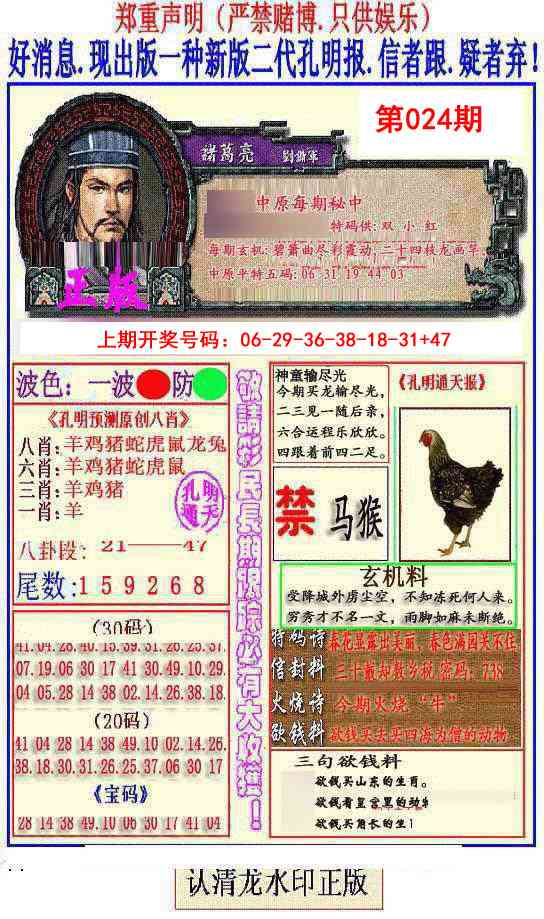 郑重声明（严禁赌博.只供娱乐）
好消息.现出版一种新版二代孔明报.信者跟.疑者弃!
第024期
諸葛亮 劉謝軍
中原每期秘中
特码供: 双 小 红
每期玄机: 碧萧曲尽彩霞动,二十四枝龙画竿.
中原平特五码: 06 31 19 44 03
正版
上期开奖号码: 06-29-36-38-18-31+47
波色: 一波 防
《孔明预测原创八肖》
八肖: 羊鸡猪蛇虎鼠龙兔
六肖: 羊鸡猪蛇虎鼠
三肖: 羊鸡猪
一肖: 羊
孔明通天
八卦段: 21——47
尾数: 159268
(30码)
41.04.28.40.15.39.31.26.25.37.
07.19.06.30 17 41 30.49.10.29.
04.05.28 14 38 02.14.26.38.18.
(20码)
41 04 28 14 38 49.10 02.14.26.
38.18.30.31.26.25.37.06 30 17
《宝码》
28 14 38 49.10 06 30 17 41 04
敬請彩民長期跟踪必有大收獲!
神童输尽光
今期买龙输尽光,
二三见一随后亲,
六合运程乐欣欣。
四跟着前四二足。
《孔明通天报》
禁 马猴
玄机料
受降城外虏尘空, 不知冻死何人来。
穷秀才不名一文, 雨脚如麻未断绝。
特码诗 春花显露出美丽, 春色满园关不住
信封料 三十散却数乡税 密码: 738
火烧诗 今期火烧“牛”
欲钱料 欲钱买去买四海为僧的动物
三句欲钱料
欲钱买山东的生肖。
欲钱看皇宫里的动
欲钱买角长的生
认清龙水印正版